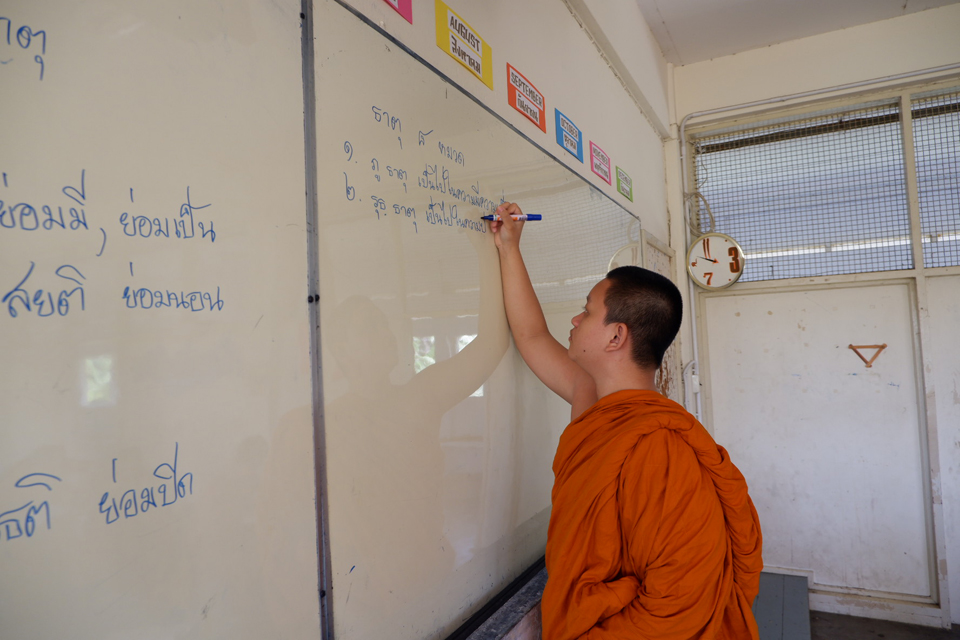 าตุ
ย่อมมี, ย่อมเป็น
สยติ ย่อมนอน
ธติ ย่อมปิด
AUGUST
สิงหาคม
SEPTEMBER
กันยายน
OCTOBER
ตุลาคม
ธาตุ ๘ หมวด
๑. ภู ธาตุ เป็นไปในความมีความ
๒. รุธฺ ธาตุ เป็นไปในความ
3
7